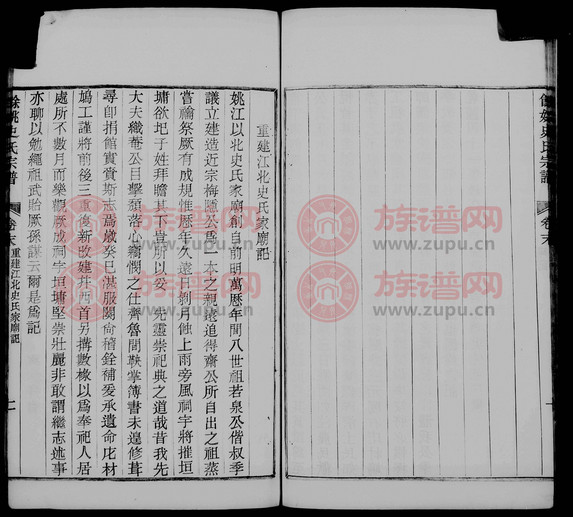 餘姚史氏宗譜
重建江北史氏家廟記
姚江以北史氏家廟創自前明萬歷年間八世祖若泉公偕叔季
議立建造近宗梅隱公爲一本之親遠追得齋公所自出之祖蒸
嘗禴祭厥有成規惟歷年久遠日剝月蝕上雨旁風祠宇將摧垣
墉欲圮子姓拜瞻其下豈所以妥 先靈崇祀典之道哉昔我先
大夫織菴公目擊頹落心竊憫之仕齊魯間鞅掌簿書未遑修葺
尋即捐館賫斯志焉歲癸巳謀服闋 補 承遺命庀材
鳩工謹將前後三重復新改建并西首另搆數椽以爲奉祀人居
處所不數月而樂觀厥成祠宇垣墉堅崇壯麗非敢謂繼志述事
亦聊以勉繩祖武貽厥孫謀云爾是爲記
餘姚史氏宗譜
卷六
重建江北史氏家廟記
一
族谱网
www.zupu.cn
族谱网
www.zupu.cn
族谱网
www.zupu.cn
族谱网
www.zupu.cn